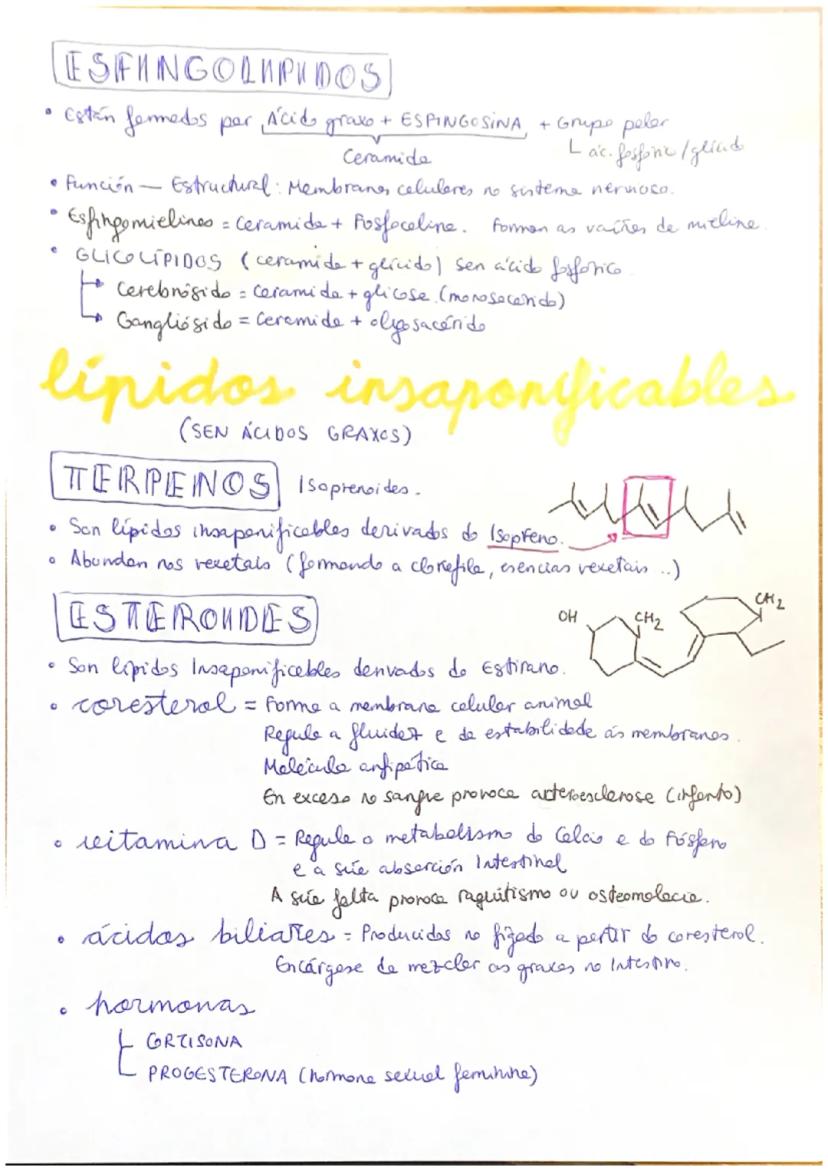 ESFINGOLÍPIDOS
• Están formados por Ácido graxo + ESFINGOSINA + Grupo polar
Ceramida
ác. fosfóric/glícido
• Función — Estructural: Membranas celulares no sistema nervioso.
• Esfingomielinas = Ceramida + Fosfocolina. Forman as vaíñas de mielina.
• GLICOLÍPIDOS (ceramida + glícido) sen ácido fosfórico
Cerebrósido = Ceramida + glicosa (monosacárido)
Gangliósido = Ceramida + oligosacárido
lípidos insaponificables
(SEN ÁCIDOS GRAXOS)
TERPENOS Isoprenoides.
• Son lípidos insaponificables derivados do Isopreno.
• Abundan nos vexetais (formando a clorofila, esencias vexetais ..)
ESTEROIDES
OH CH2 CH2
• Son lípidos Insaponificables derivados do Estirano.
• coresterol = Forma a membrana celular animal
Regula a fluidez e da estabilidade ás membranas.
Molécula anfipática
En exceso no sangre provoca arteroesclerose (infarto)
• vitamina D = Regula o metabolismo do Calcio e do Fósforo
e a súa absorción Intestinal
A súa falta provoca raquitismo ou osteomalacia.
• ácidos biliares = Producidos no fígado a partir do coresterol.
Encárgase de mezclar as graxas no Intestino.
• hormonas
CORTISONA
PROGESTERONA (hormona sexual feminina)